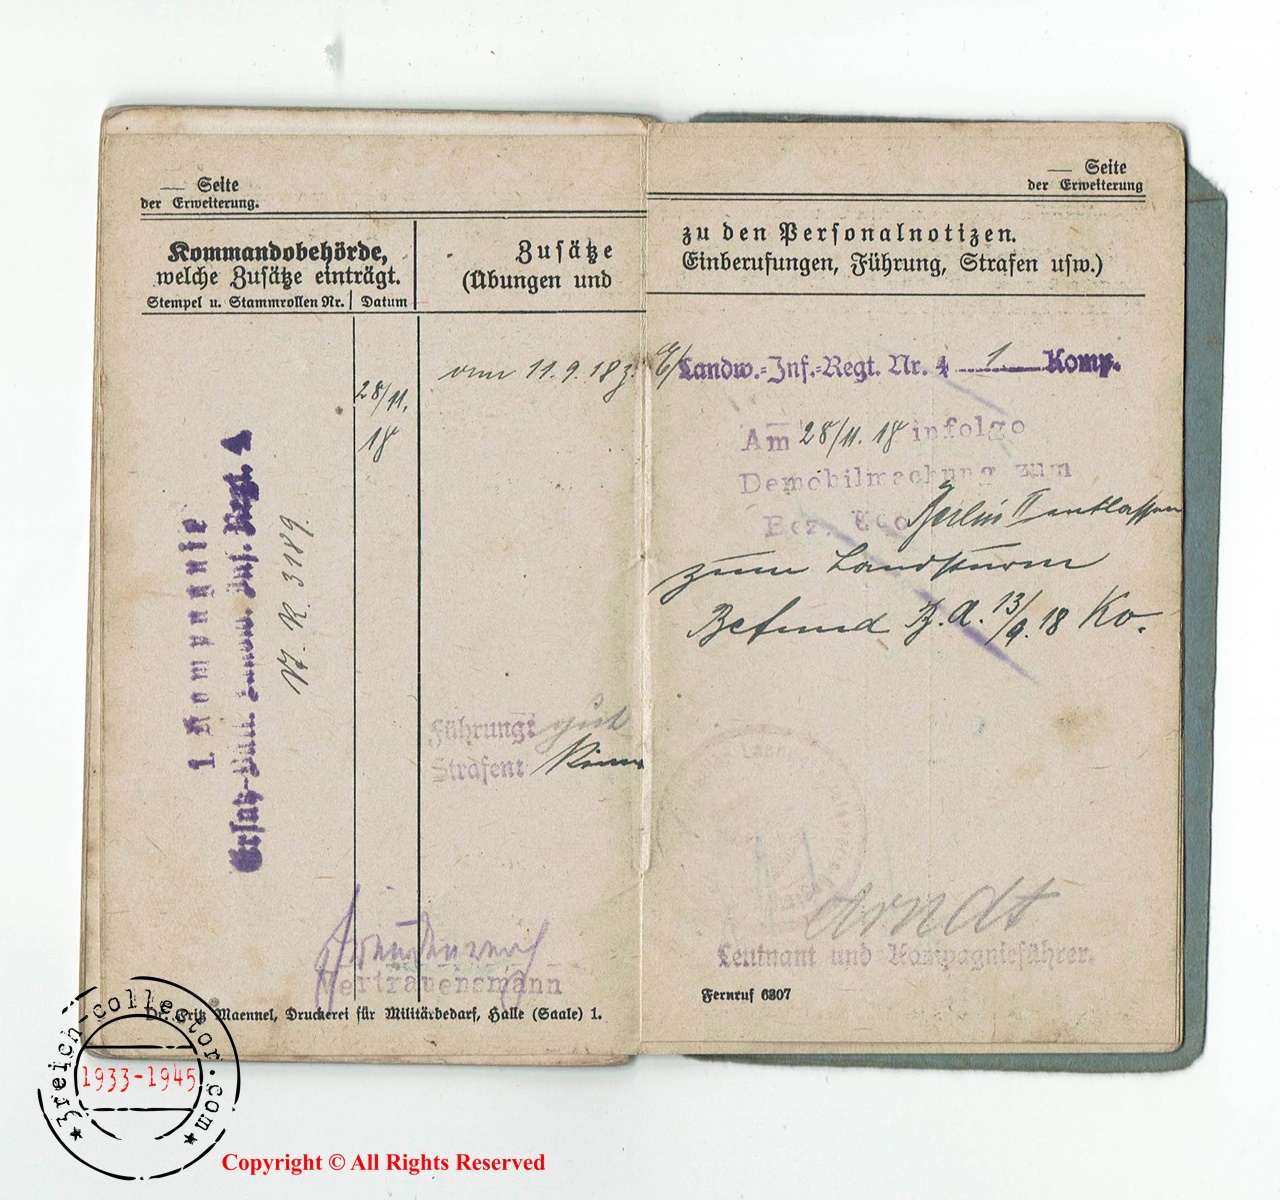 — Seite
der Erweiterung.
Kommandobehörde,
welche Zusätze einträgt.
Stempel u. Stammrollen Nr. | Datum
Zusätze
(Übungen und
— Seite
der Erweiterung
zu den Personalnotizen.
Einberufungen, Führung, Strafen usw.)
vom 11.9.18 z. E/Landw.=Inf.=Regt. Nr. 4 1 Komp.
28/11.
18
Am 28/11. 18 infolge
Demobilmachung zum
Bez. Kdo Berlin II entlassen
zum Landsturm
Befund B.A. 13/9.18 Ko.
1. Kompagnie
Ersatz-Batl. Landw. Inf. Regt. 4
K. 3189.
Führung: gut
Strafen: Keine
Vertrauensmann
Arndt
Leutnant und Kompagnieführer.
Dr. Fritz Maennel, Druckerei für Militärbedarf, Halle (Saale) 1.
Fernruf 6307
3reich-collector.com
1933-1945
Copyright © All Rights Reserved